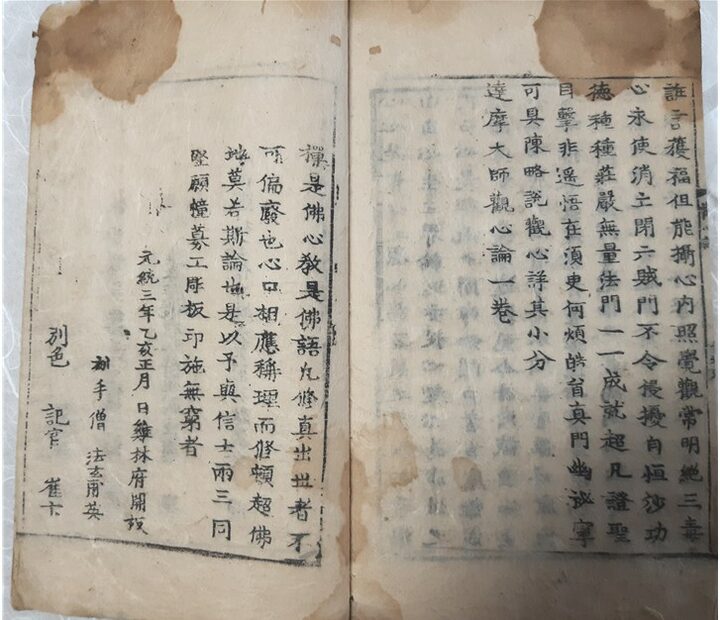 誰言獲福但能攝心內照覺觀常明絶三毒
心永使消亡閉六賊門不令侵擾自恒沙功
德種種莊嚴無量法門一一成就超凡證聖
目擊非遥悟在須臾何煩皓首真門幽祕寧
可具陳略說觀心詳其小分
達摩大師觀心論一卷
禪是佛心教是佛語凡修真出世者不
可偏廢也心口相應稱理而修頓超佛
地莫若斯論也是以予與信士兩三同
堅願幢募工彫板印施無窮者
元統三年乙亥正月 日雞林府開板
刻手僧 法玄 英
別色 記官 崔